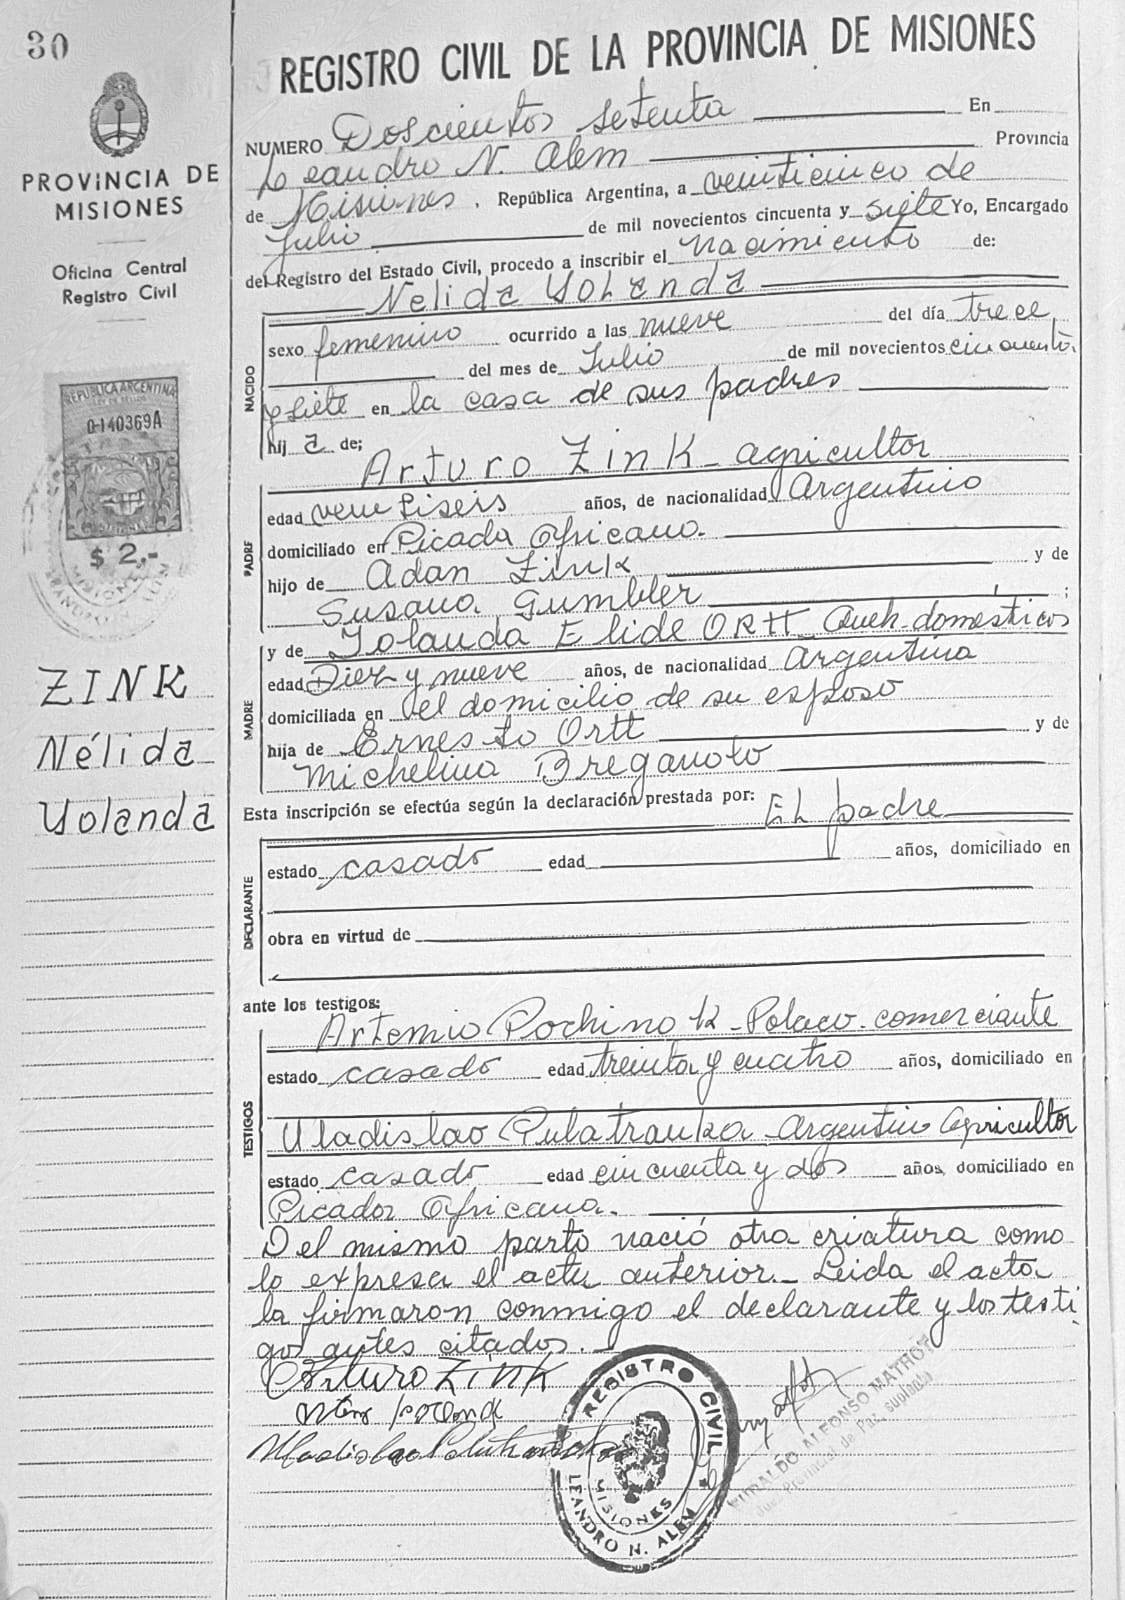 30
REGISTRO CIVIL DE LA PROVINCIA DE MISIONES
PROVINCIA DE
MISIONES
Oficina Central
Registro Civil
REPUBLICA ARGENTINA
0140369A
$ 2,-
ZINK
Nélida
Yolanda
NUMERO Doscientos setenta En
Leandro N. Alem Provincia
de Misiones, República Argentina, a veinticinco de
Julio de mil novecientos cincuenta y siete Yo, Encargado
del Registro del Estado Civil, procedo a inscribir el nacimiento de:
Nelida Yolanda
NACIDO
sexo femenino ocurrido a las nueve del día trece
del mes de Julio de mil novecientos cincuenta
y siete en la casa de sus padres
hij a de;
Arturo Zink - agricultor
PADRE
edad veintiseis años, de nacionalidad Argentino
domiciliado en Picada Africana.
hijo de Adan Zink y de
Susana Gumbler;
y de Iolanda Elide ORTT - Queh. domésticos
MADRE
edad Diez y nueve años, de nacionalidad Argentina
domiciliada en el domicilio de su esposo
hija de Ernesto Ortt y de
Michelina Breganoto
Esta inscripción se efectúa según la declaración prestada por: EL padre
DECLARANTE
estado casado edad años, domiciliado en
obra en virtud de
ante los testigos:
Artemio Pochinok - Polaco - comerciante
TESTIGOS
estado casado edad treinta y cuatro años, domiciliado en
Uladislao Argentino agricultor
estado casado edad cincuenta y dos años, domiciliado en
Picada Africana.
Del mismo parto nació otra criatura como
lo expresa el acta anterior. - Leida el acta
la firmaron conmigo el declarante y los testi
gos antes citados. -
Arturo Zink
REGISTRO CIVIL
MISIONES
LEANDRO N. ALEM
ALFONSO MATROT
Juez Provincial de Paz suplente